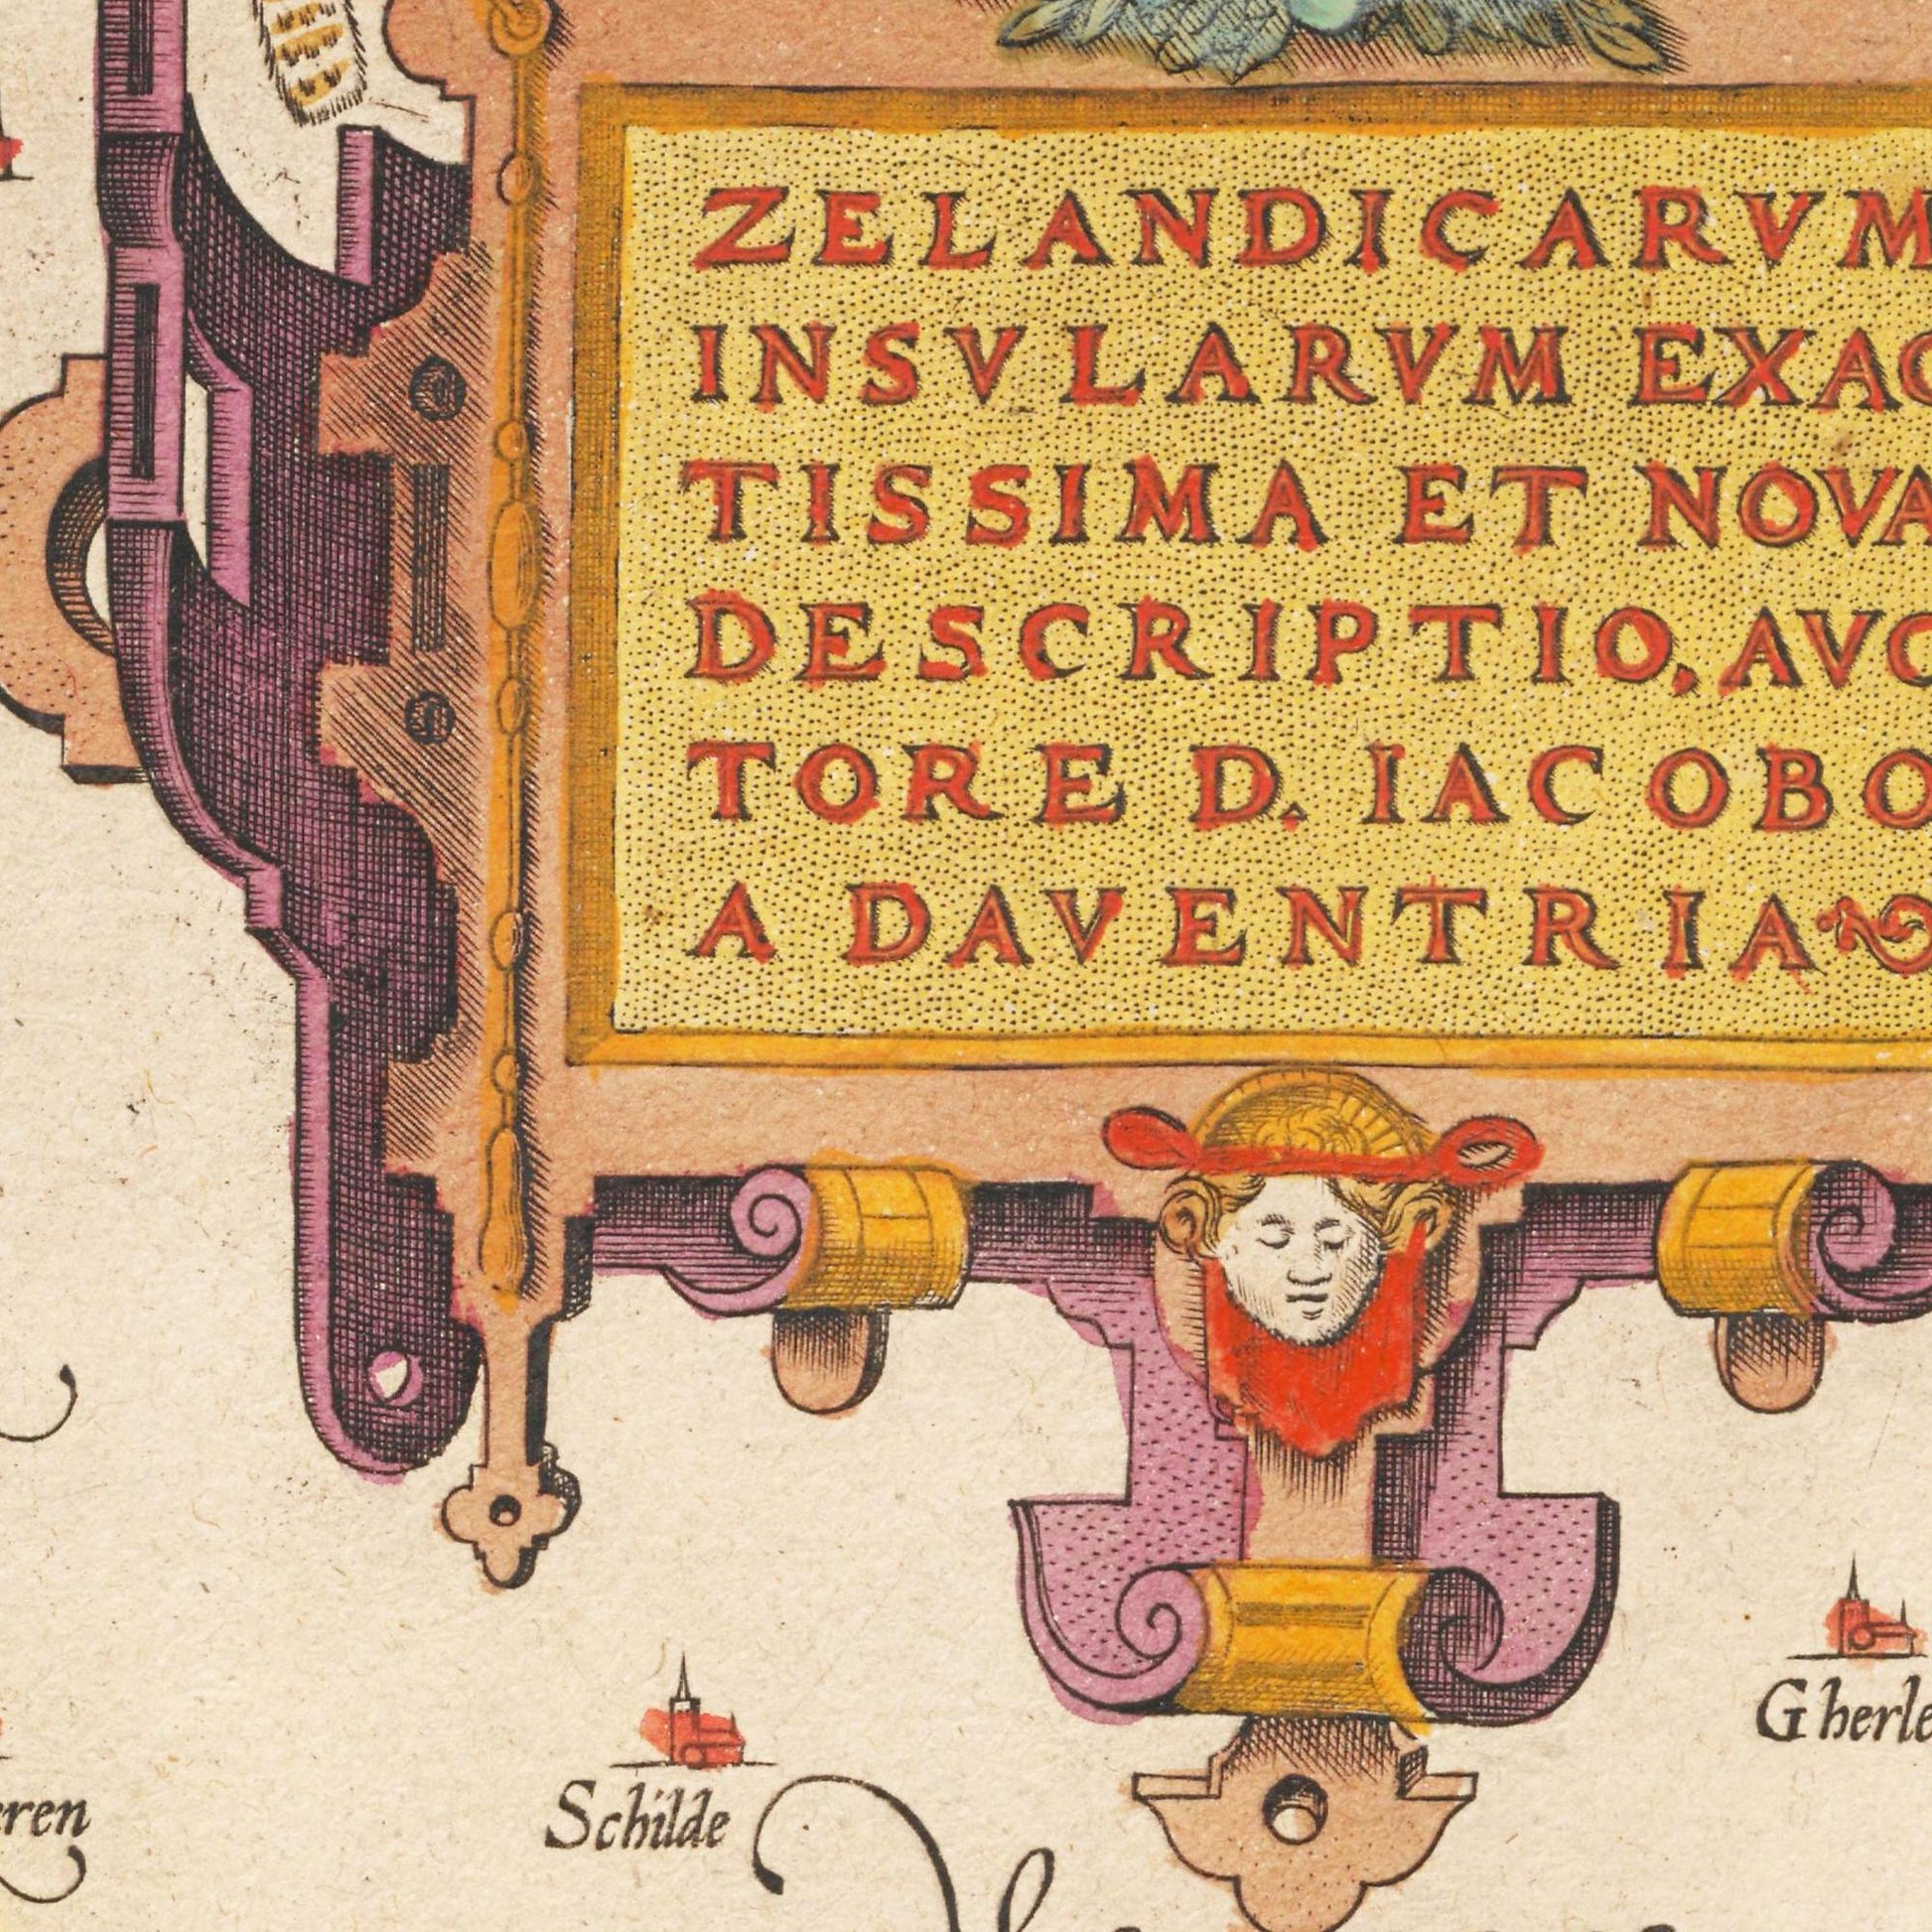 ZELANDICARVM
INSVLARVM EXAC
TISSIMA ET NOVA
DESCRIPTIO, AVC
TORE D. IACOBO
A DAVENTRIA
Gherle
Schilde
eren